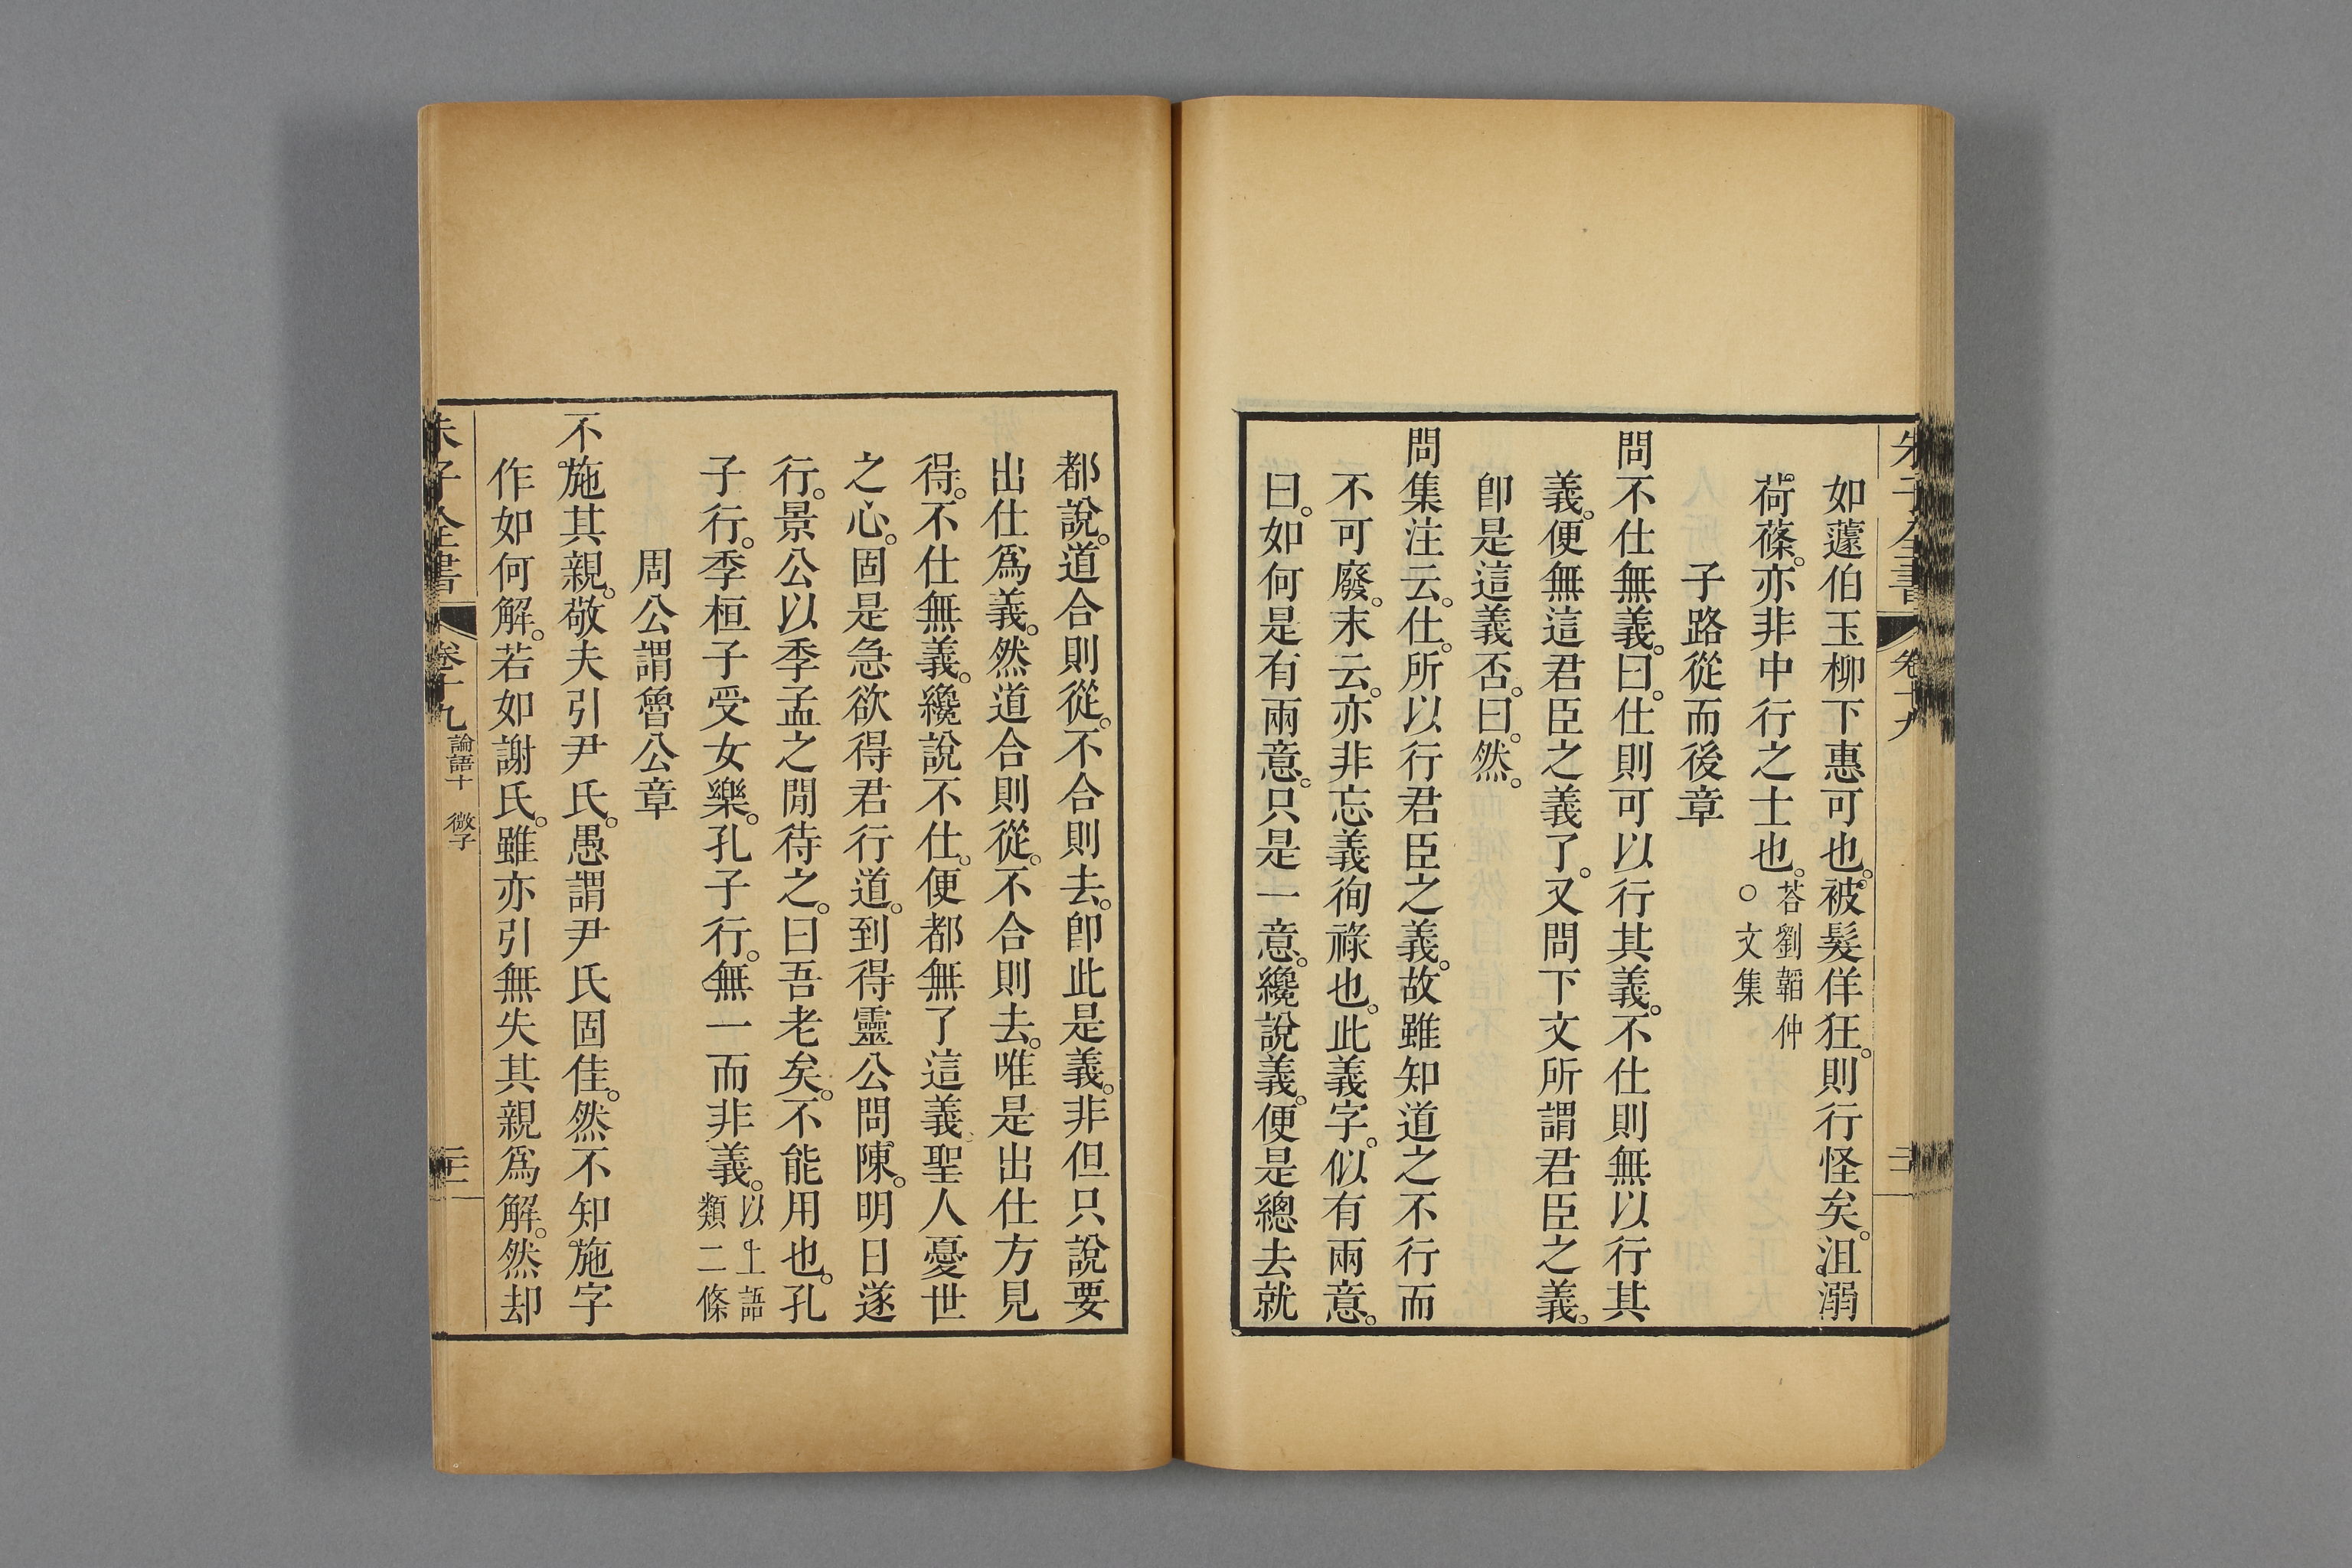 如蘧伯玉柳下惠可也。被髮佯狂。則行怪矣。沮溺
荷蓧。亦非中行之士也。○荅劉韜仲文集
子路從而後章
問不仕無義。曰。仕則可以行其義。不仕則無以行其
義。便無這君臣之義了。又問下文所謂君臣之義。
卽是這義否。曰。然。
問集注云。仕。所以行君臣之義。故雖知道之不行而
不可廢。末云。亦非忘義徇祿也。此義字。似有兩意。
曰。如何是有兩意。只是一意。纔說義。便是總去就
都說。道合則從。不合則去。卽此是義。非但只說要
出仕爲義。然道合則從。不合則去。唯是出仕方見
得。不仕無義。纔說不仕。便都無了這義。聖人憂世
之心。固是急欲得君行道。到得靈公問陳。明日遂
行。景公以季孟之閒待之。曰吾老矣。不能用也。孔
子行。季桓子受女樂。孔子行。無一而非義。以上語類二條
周公謂魯公章
不施其親。敬夫引尹氏。愚謂尹氏固佳。然不知施字
作如何解。若如謝氏。雖亦引無失其親爲解。然却
朱子全書 卷十九 論語十 微子